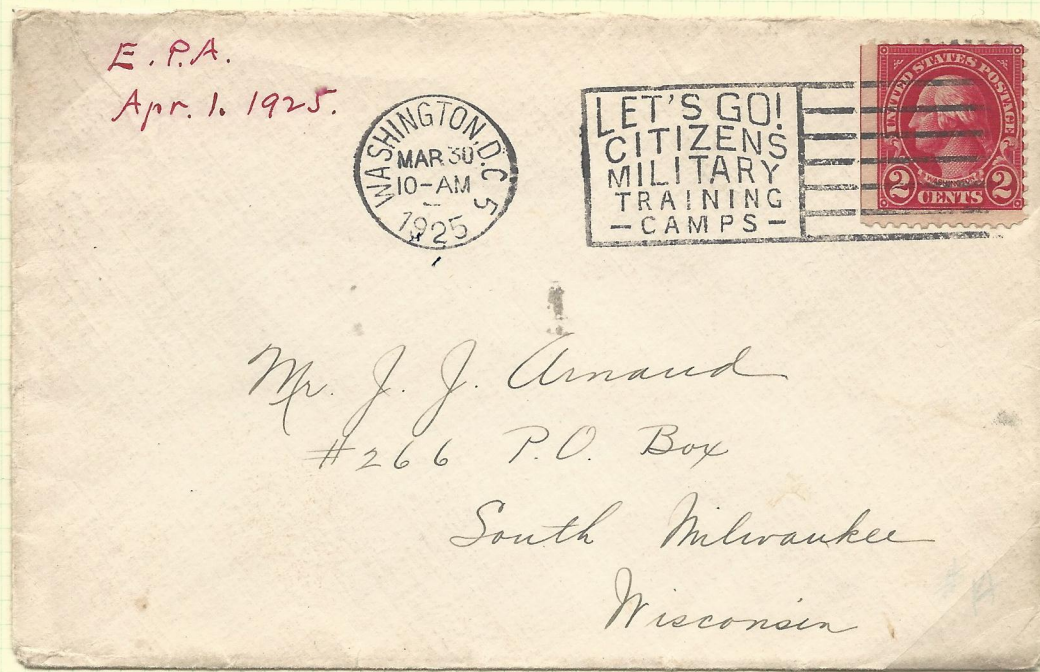 E. P. A.
Apr. 1. 1925.
WASHINGTON, D.C. 5
MAR 30
10-AM
1925
LET'S GO!
CITIZENS
MILITARY
TRAINING
-CAMPS-
UNITED STATES POSTAGE
WASHINGTON
2 CENTS 2
Mr. J. J. Arnaud
#266 P.O. Box
South Milwaukee
Wisconsin